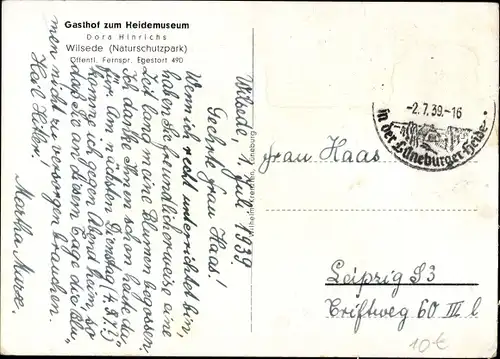 Gasthof zum Heidemuseum
Dora Hinrichs
Wilsede (Naturschutzpark)
Öffentl. Fernspr. Egestorf 490
Wilsede, Juli 1939.
Geehrte Frau Haas!
Wenn ich recht unterrichtet bin,
haben Sie grundlicherweise eine
Zeit land meine Blumen begossen.
Ich danke Ihnen schon heute da-
für. Am nächsten Dienstag (4.7.?)
komme ich gegen Abend heim, so
daß Sie an diesem Tage die Blu
men nicht zu versorgen brauchen.
Heil Hitler!
Martha Marx.
-2.7.39.-16
in der Lüneburger Heide
Frau Haas
Leipzig S3
Triftweg 60 III l
10€